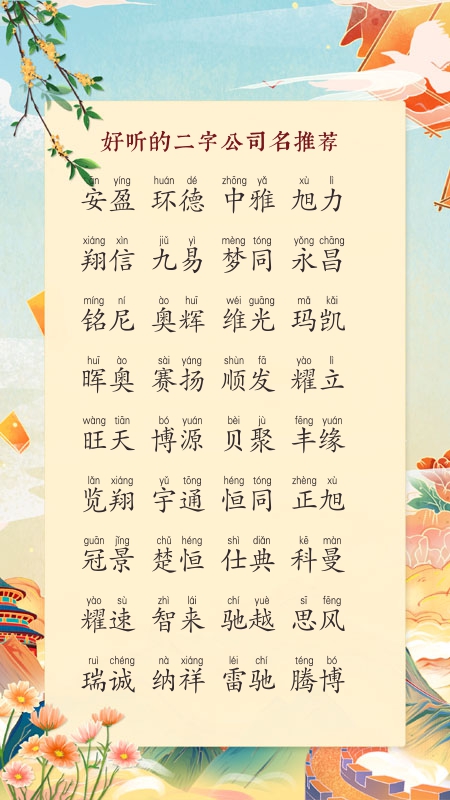 好听的二字公司名推荐
ān yíng huán dé zhōng yǎ xù lì
安盈 环德 中雅 旭力
xiáng xìn jiǔ yì mèng tóng yǒng chāng
翔信 九易 梦同 永昌
míng ní ào huī wéi guāng mǎ kǎi
铭尼 奥辉 维光 玛凯
huī ào sài yáng shùn fā yào lì
晖奥 赛扬 顺发 耀立
wàng tiān bó yuán bèi jù fēng yuán
旺天 博源 贝聚 丰缘
lǎn xiáng yǔ tōng héng tóng zhèng xù
览翔 宇通 恒同 正旭
guān jǐng chǔ héng shì diǎn kē màn
冠景 楚恒 仕典 科曼
yào sù zhì lái chí yuè sī fēng
耀速 智来 驰越 思风
ruì chéng nà xiáng léi chí téng bó
瑞诚 纳祥 雷驰 腾博